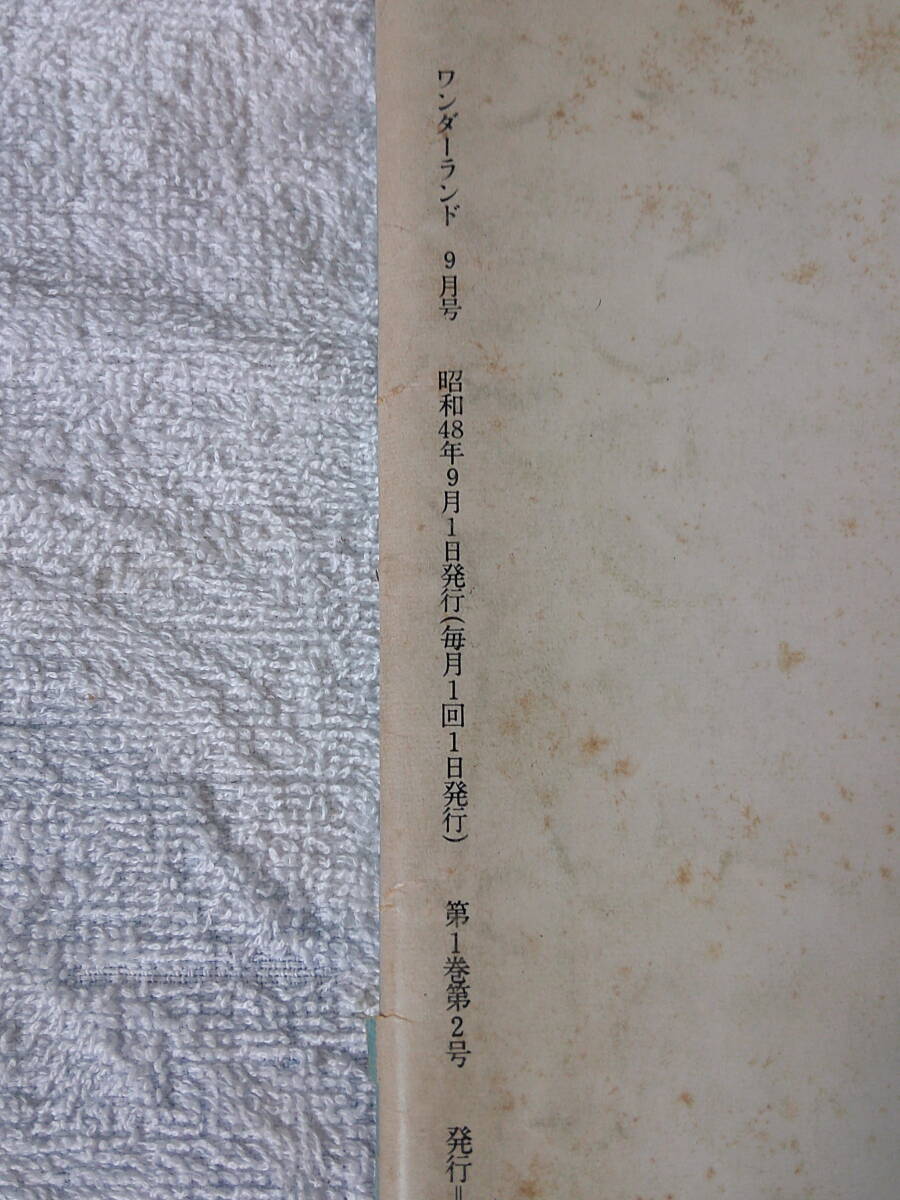 ワンダーランド 9月号 昭和48年9月1日発行(毎月1回1日発行) 第1巻第2号 発行=